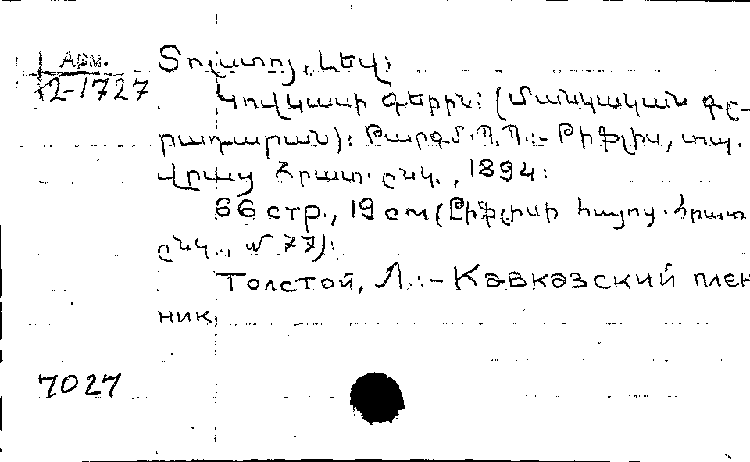 Арм.
2-1727
Տոլստոյ, Լեվ:
Կովկասի գերին: (Մանկական գր-
րադարան): Թարգմ. Պ. Պ.:- Թիֆլիս, տպ.
Վրաց Հրատ. ընկ., 1894:
66 стр., 19 см (Թիֆլիսի հայոց. հրատ
ընկ., № 77):
Толстой, Л.:- Кавказский плен
ник
7027